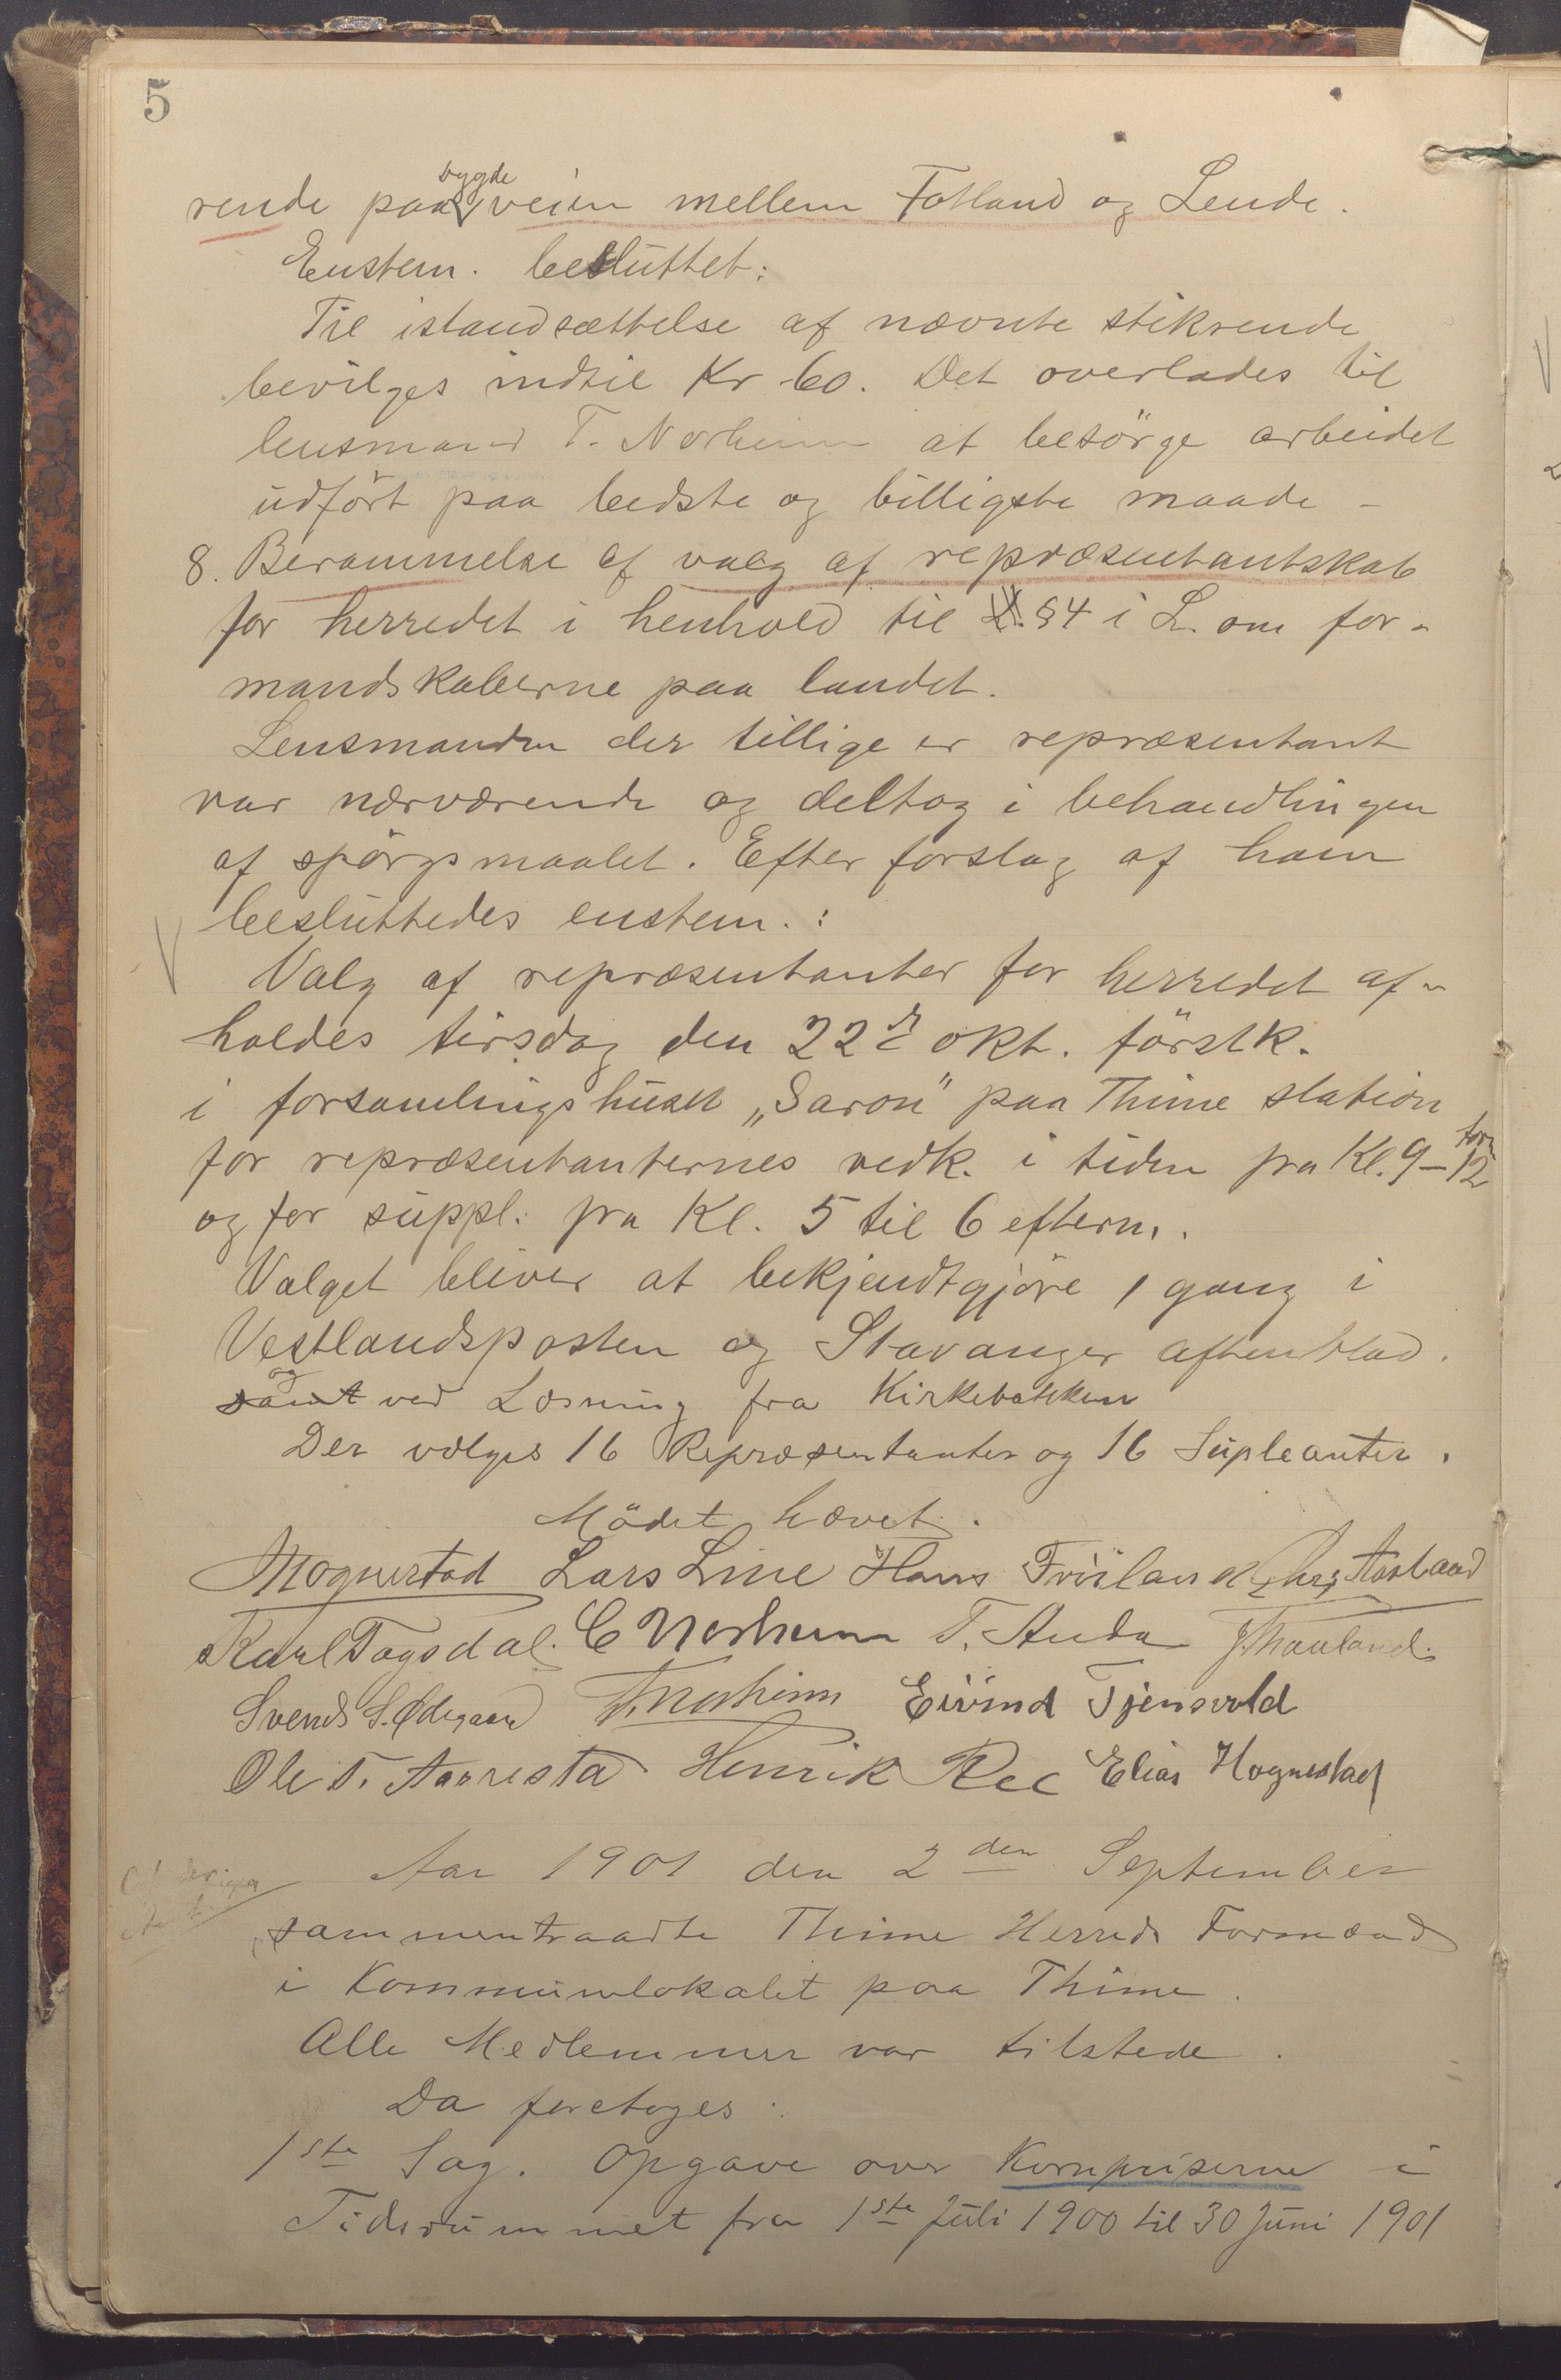 5
rende paa bygdeveien mellem Fotland og Lende.
Enstem. besluttet:
Til istandsættelse af nævnte stikrende
bevilges indtil Kr 60. Det overlades til
lensmand T. Norheim at besörge arbeidet
udfört paa bedste og billigste maade -
8. Berammelse af valg af repræsentantskab
for herredet i henhold til § 4 i L. om for-
mandskaberne paa landet.
Lensmanden der tillige er repræsentant
var nærværende og deltog i behandlingen
af spörgsmaalet. Efter forslag af ham
besluttedes enstem.:
Valg af repræsentanter for herredet af-
holdes tirsdag den 22de okt. förstk.
i forsamlingshuset „Saron" paa Thime station
for repræsentanternes vedk. i tiden fra Kl. 9-12 form
og for suppl. fra Kl. 5 til 6 efterm.
Valget bliver at bekjendtgjöre 1 gang i
Vestlandsposten og Stavanger aftenblad.
samt og ved Læsning fra Kirkebakken
Der vælges 16 Repræsentanter og 16 Supleanter.
Mödet hævet.
MHognestad Lars Line Hans Fröiland Chr. Aasland
Karl Tagsdal. C Norheim T. Auda J. Thauland.
Svend S. Ödegaard T. Norheim Eivind Tjensvold
Ole T. Aarrestad Henrik Ree Elias Hognestad
Aar 1901 den 2den September
sammentraadte Thime Herreds Formænd
i Kommunelokalet paa Thime.
Alle Medlemmer var tilstede.
Da foretoges:
1ste Sag. Opgave over Kornpriserne i
Tidsrummet fra 1ste Juli 1900 til 30 Juni 1901